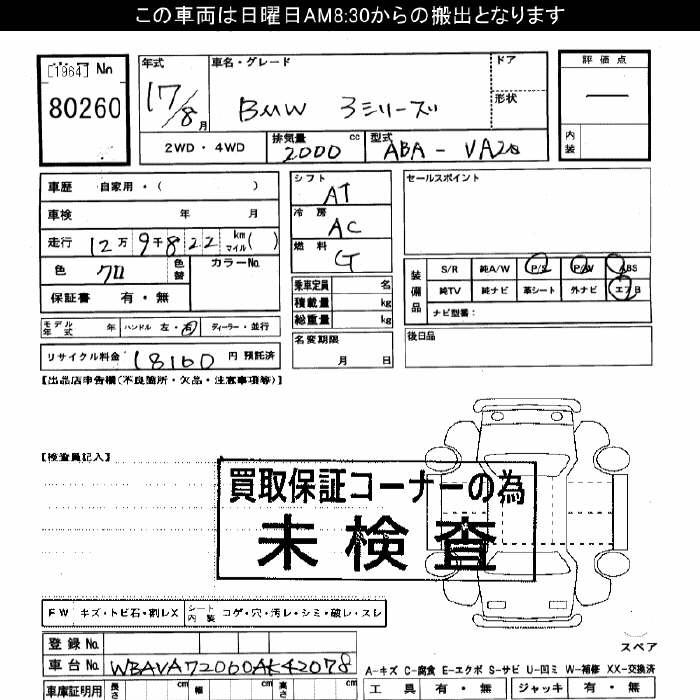 この車両は日曜日AM8:30からの搬出となります
[1964] No
80260
年式 17/8月
車名・グレード BMW 3シリーズ
ドア
形状
評価点 —
内装
2WD・4WD
排気量 2000 cc
型式 ABA-VA20
車歴 自家用・( )
車検 年 月
走行 12万9千8 22 km マイル( )
色 クロ 色替
カラーNo.
保証書 有・無
シフト AT
冷房 AC
燃料 G
乗車定員 名
積載量 kg
総重量 kg
セールスポイント
装備品
S/R 純A/W P/S P/W ABS
純TV 純ナビ 革シート 外ナビ エアB
ナビ型番:
モデル年式 年 ハンドル 左・右 ディーラー・並行
リサイクル料金 18160 円 預託済
名変期限 月 日
後日品
【出品店申告欄(不良箇所・欠品・注意事項等)】
【検査員記入】
買取保証コーナーの為
未検査
FW キズ・トビ石・割レX
シート内装 コゲ・穴・汚レ・シミ・破レ・スレ
登録No.
車台No. WBAVA72060AK42078
車庫証明用 長さ cm 幅 cm 高さ cm
スペア
A-キズ C-腐食 E-エクボ S-サビ U-凹ミ W-補修 XX-交換済
工具 有・無 ジャッキ 有・無